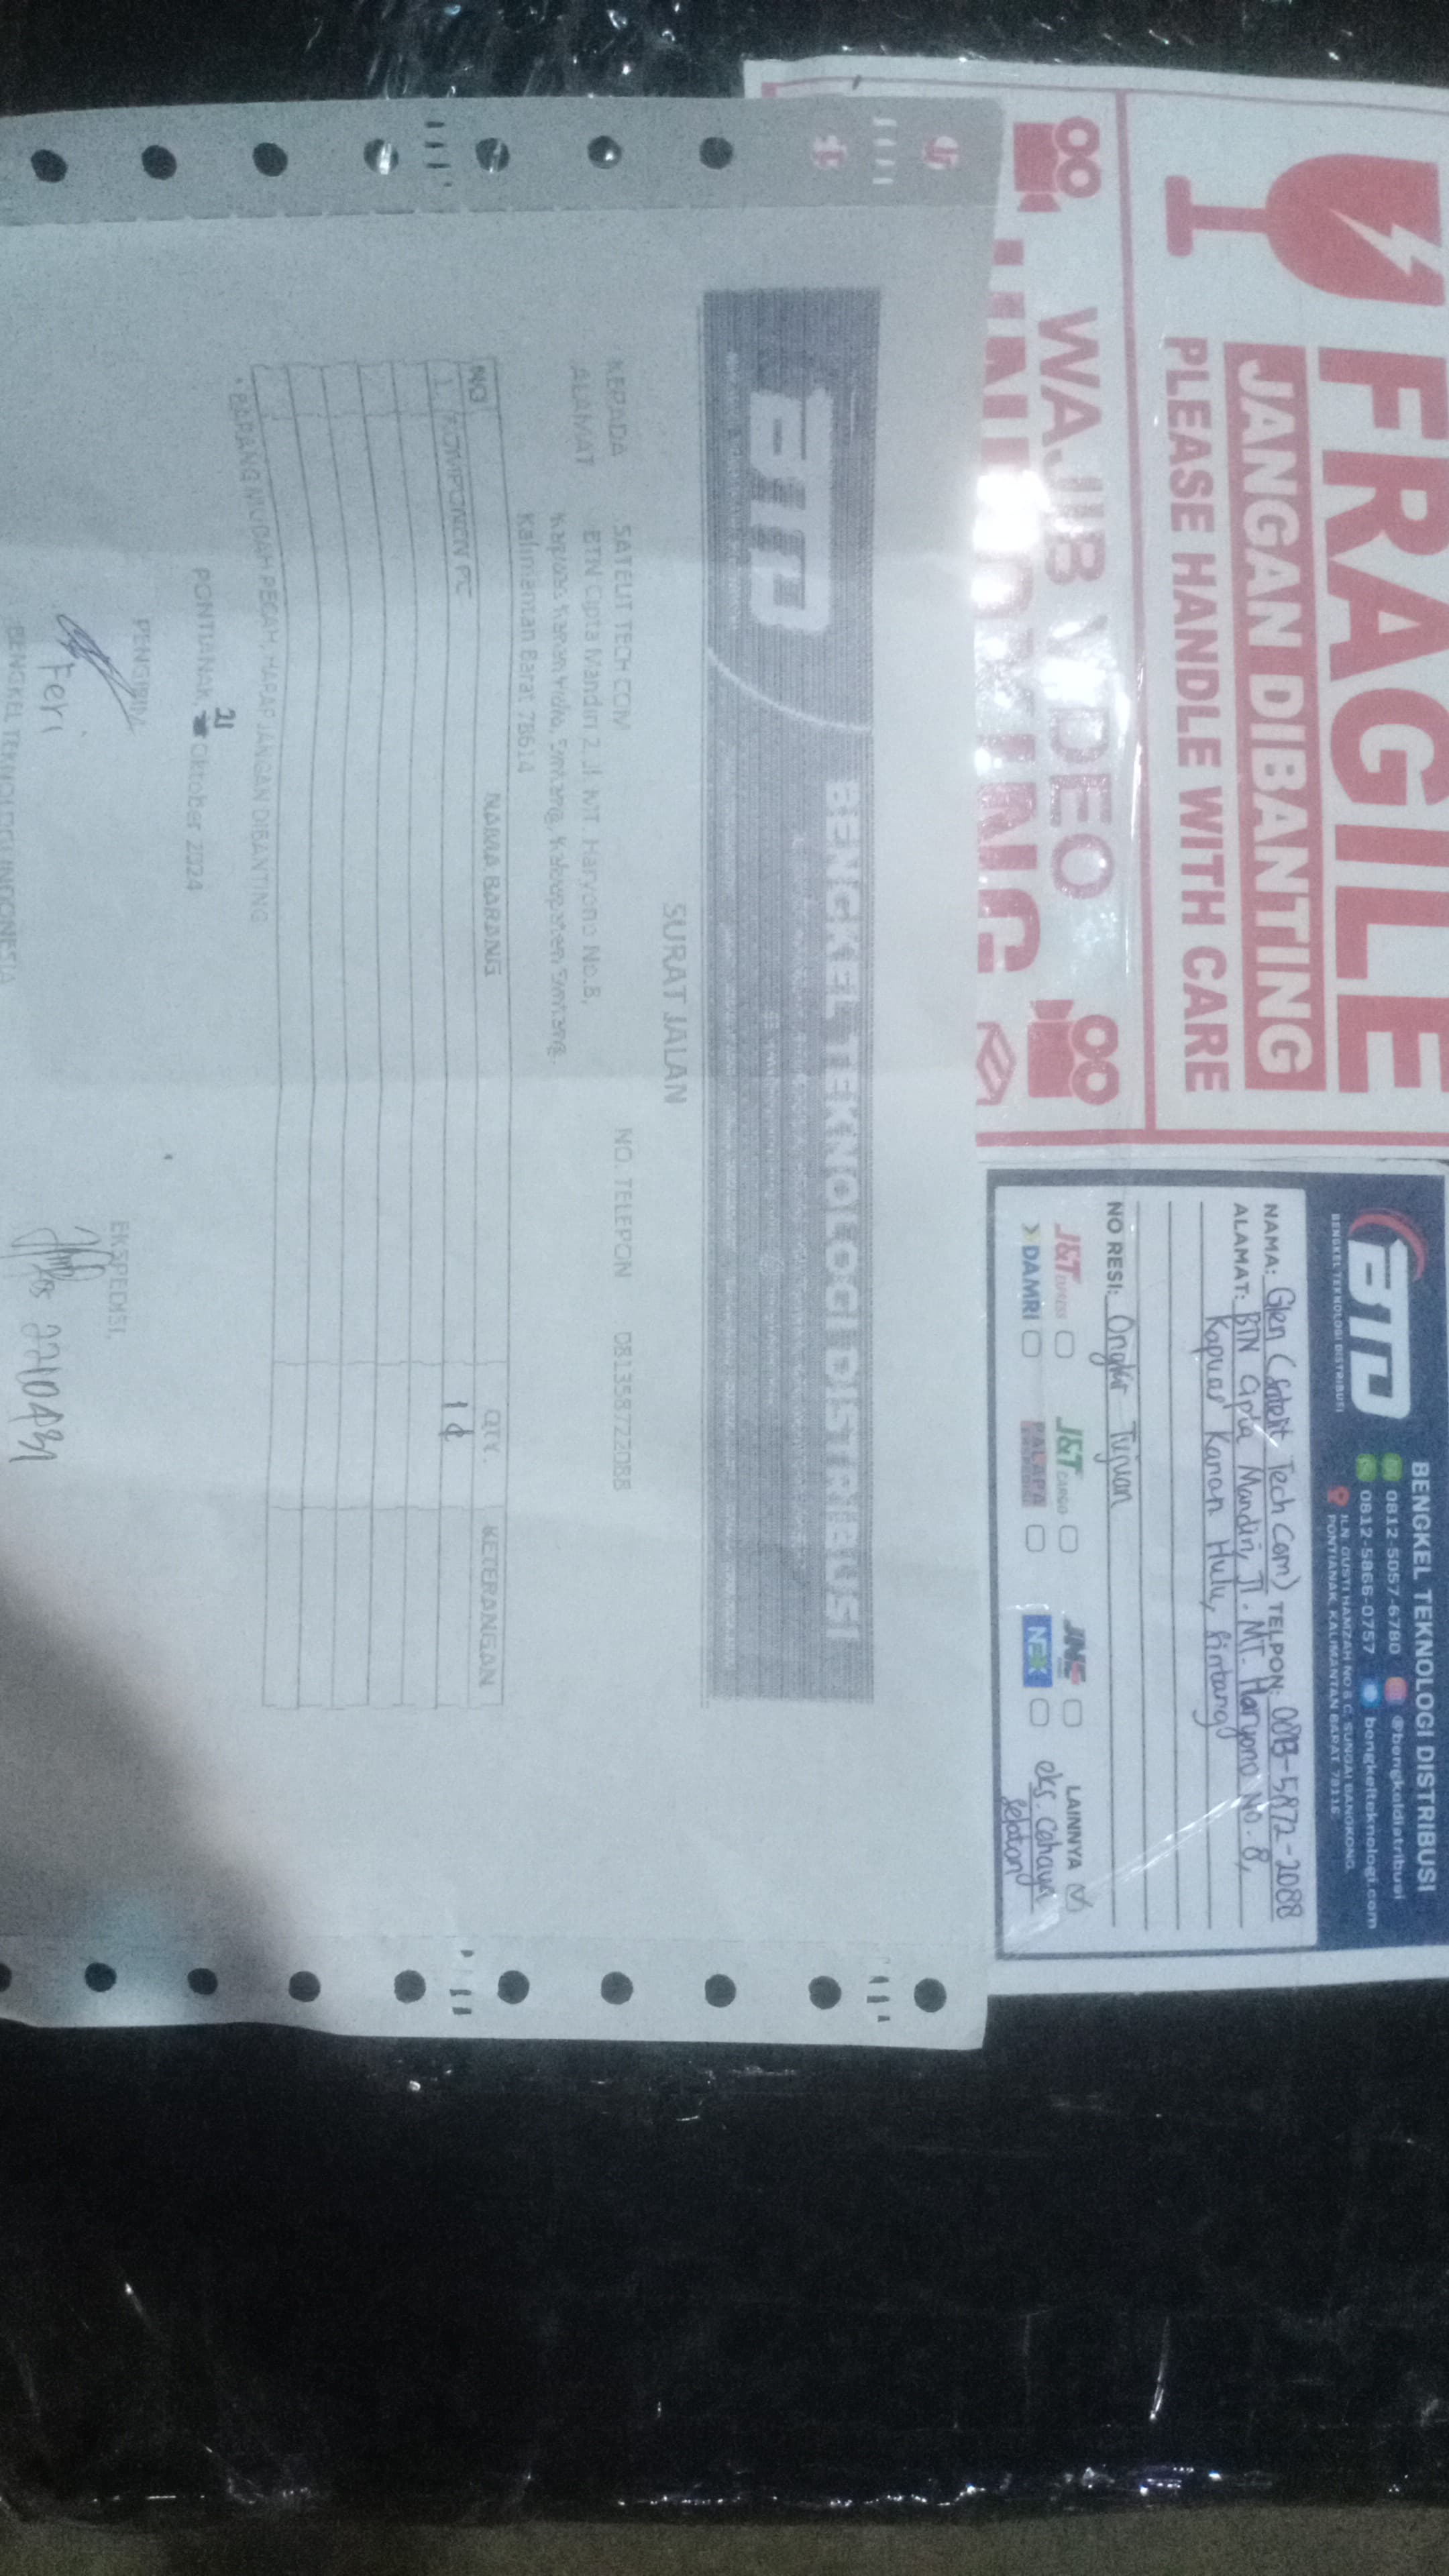 FRAGILE
JANGAN DIBANTING
PLEASE HANDLE WITH CARE
WAJIB VIDEO
BTD
BENGKEL TEKNOLOGI DISTRIBUSI
BENGKEL TEKNOLOGI DISTRIBUSI
0812-5057-6780 @bengkeldistribusi
0812-5866-0757 bengkelteknologi.com
JLN. GUSTI HAMZAH NO 8 C, SUNGAI BANGKONG,
PONTIANAK, KALIMANTAN BARAT 78116
NAMA: Glen (Satelit Tech Com) TELPON: 0813-5872-2088
ALAMAT: BTN Cipta Mandiri, Jl. MT. Haryono No. 8,
Kapuas Kanan Hulu, Sintang
NO RESI: Ongkir Tujuan
J&T EXPRESS J&T CARGO JNE LAINNYA
DAMRI PALAPA NEX eks. Cahaya
Selatan
BTD
BENGKEL TEKNOLOGI DISTRIBUSI
SURAT JALAN
KEPADA SATELIT TECH COM NO. TELEPON 081358722088
ALAMAT BTN Cipta Mandiri 2 Jl MT. Haryono No.8,
Kapuas Kanan Hulu, Sintang, Kabupaten Sintang,
Kalimantan Barat 78614
NO NAMA BARANG QTY. KETERANGAN
1. KOMPONEN PC 1
BARANG MUDAH PECAH, HARAP JANGAN DIBANTING
PONTIANAK, 21 Oktober 2024
PENGIRIM, EKSPEDISI,
Feri
BENGKEL TEKNOLOGI INDONESIA